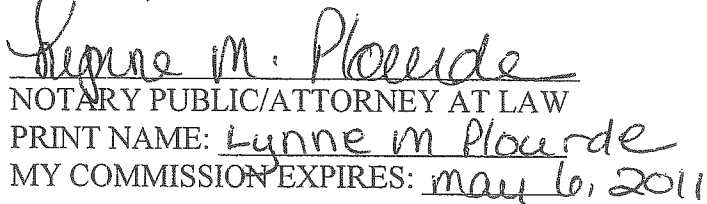 Lynne M. Plourde
NOTARY PUBLIC/ATTORNEY AT LAW
PRINT NAME: Lynne M Plourde
MY COMMISSION EXPIRES: may 6, 2011